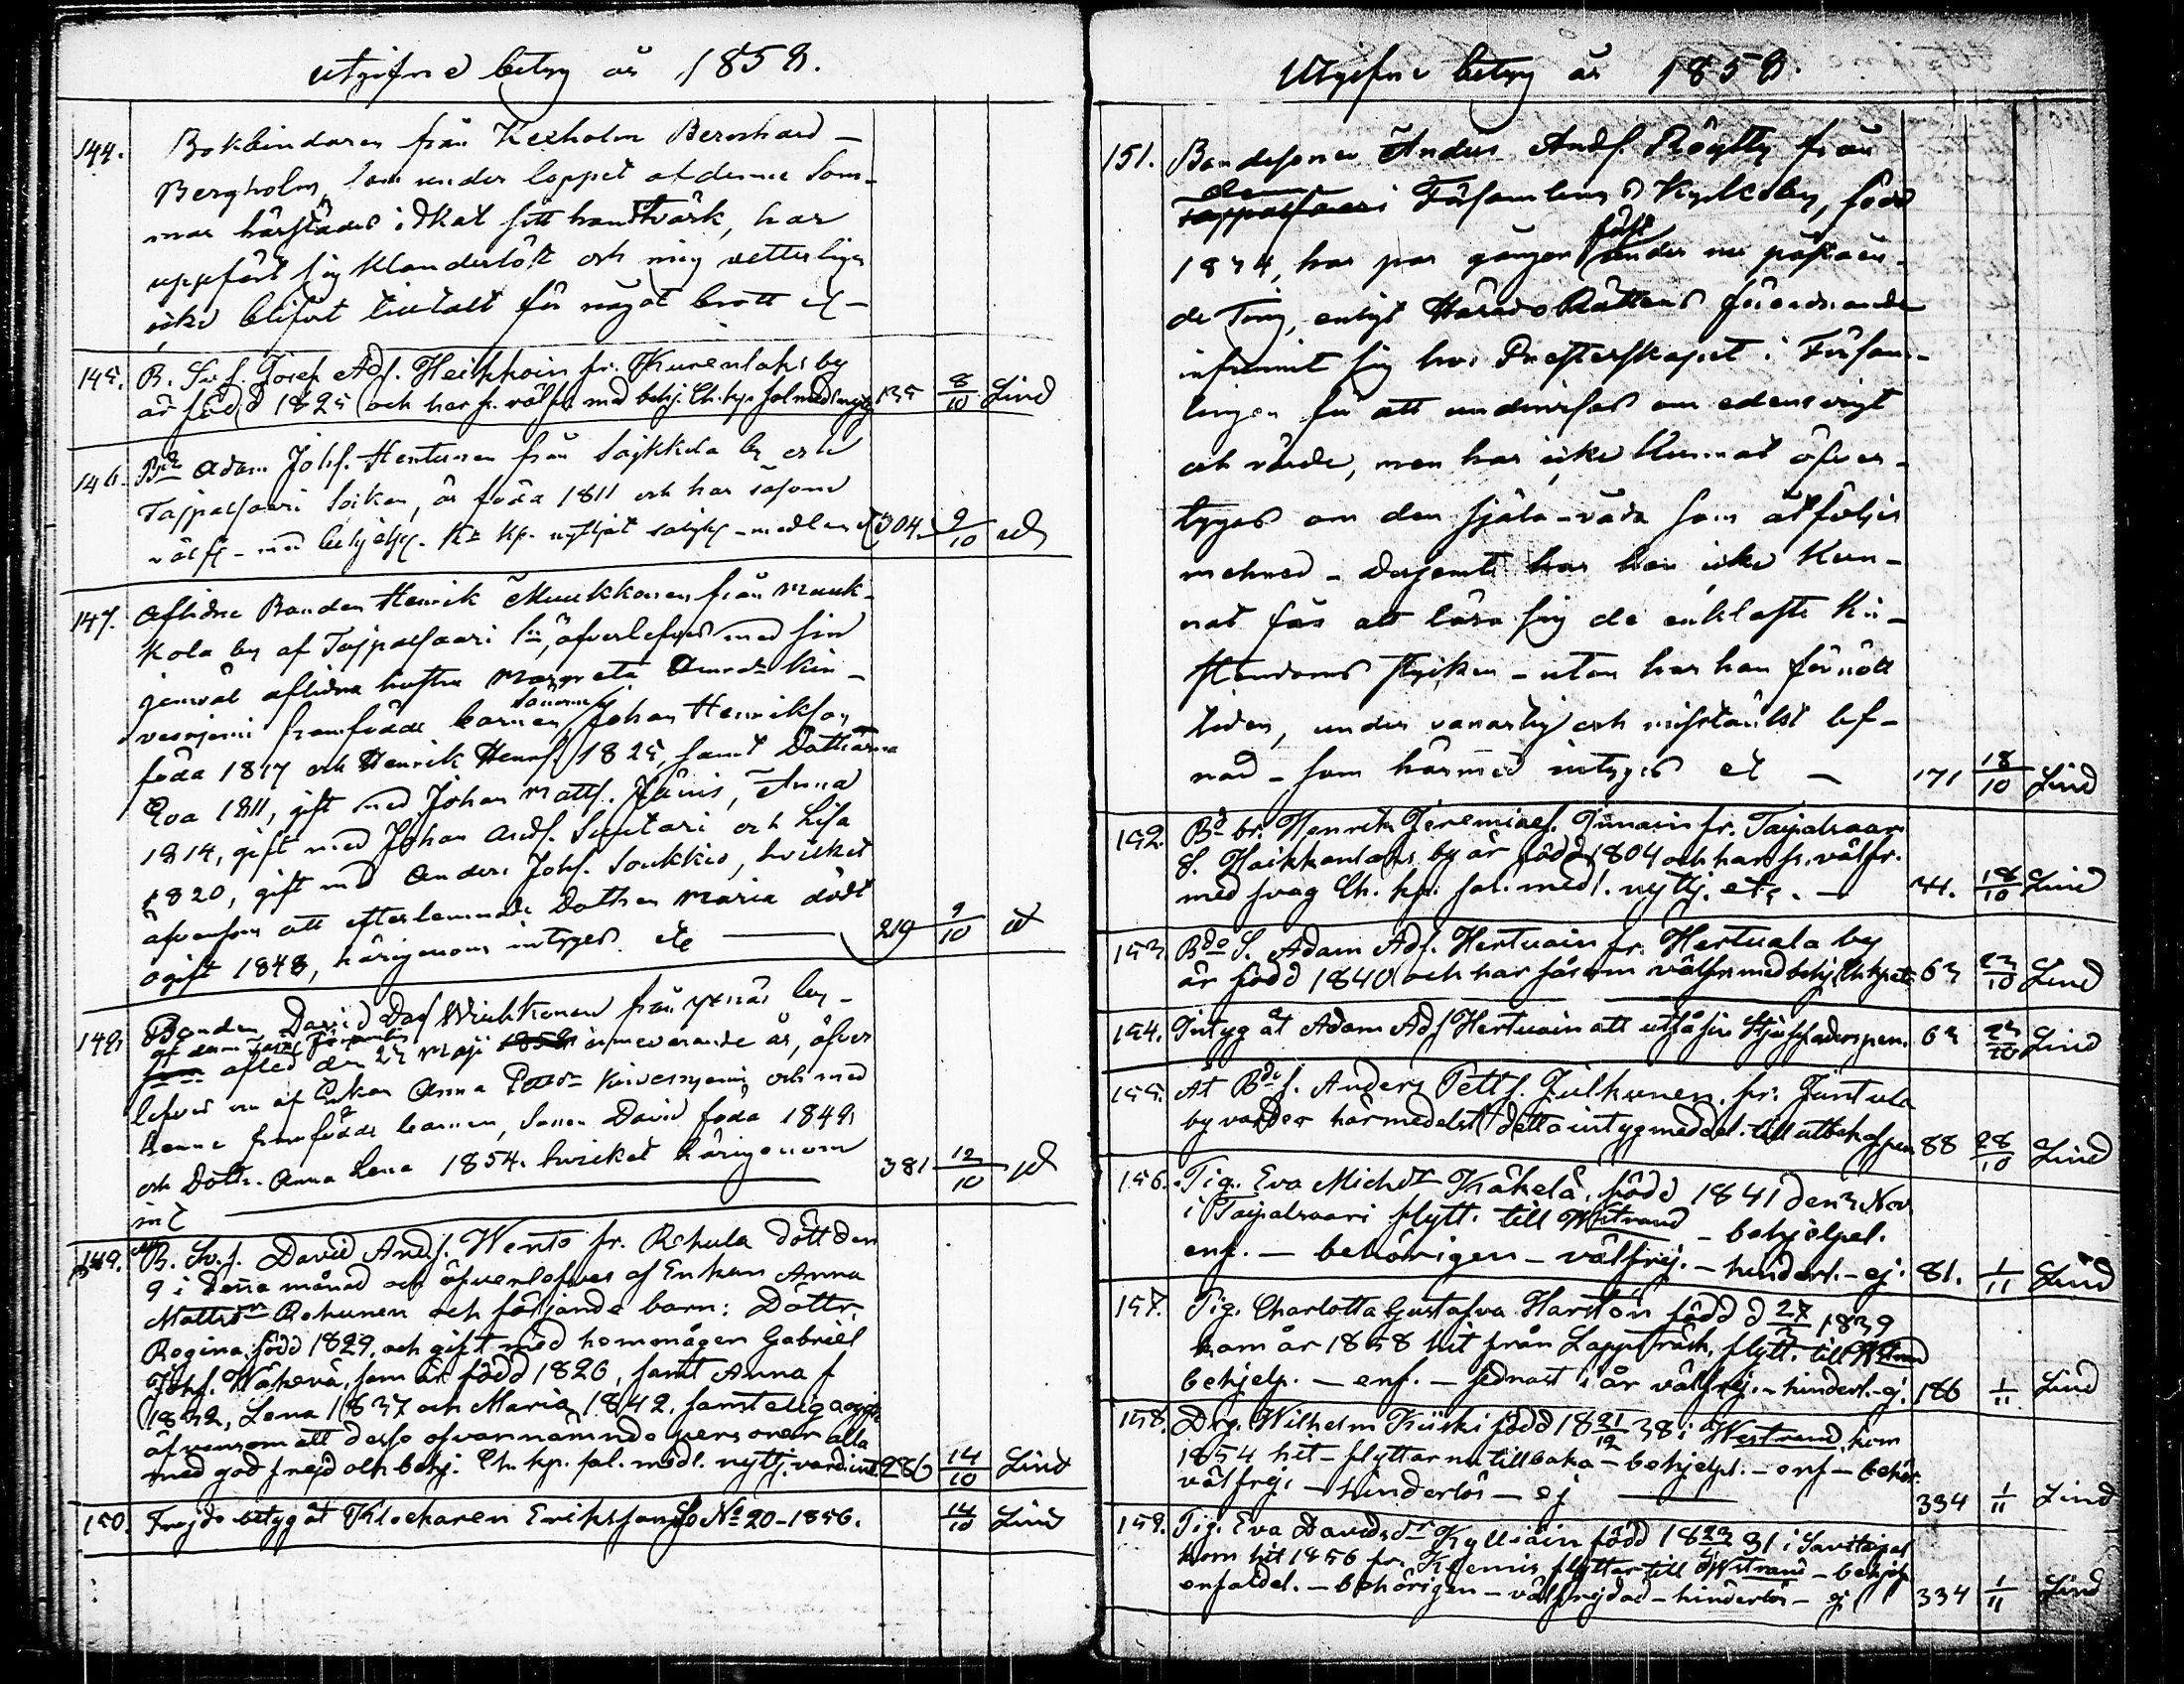 utgifne betyg år 1858.
144. Bokbindaren från Kexholm Bernhard –
Bergholm, som under loppet af denne som-
mar härstädes idkat sitt handtvärk, har
uppfört sig klanderlöst och mig vetterligen
icke blifvit tilltalt för något brott etc –
145. B. Sv. s. Josef Ads. Heikkoin fr. Kurenlaks by
är född 1825 och har fr. välfr. med behj. Ch. kp. sal. medl. nyttj. 135 8/10 Lind
146. Bde Adam Johs. Hentunen från Sajkkola by och
Tajpalsaari Socken, är född 1811 och har såsom
välfr – med behjelpl. Kr. kp. nyttjat salighs – medlen etc 304. 9/10 id
147. Aflidne Bonden Henrik Muukkonen från Muuk-
kola by af Tajpalsaari Sn, öfverlefves med sin
jemväl aflidna hustru Margreta Kin-
vesnjemi framfödde barnen, sönerne Johan Henriksson
föda 1817 och Henrik Henrs. 1825, samt Döttrarna
Eva 1811, gift med Johan Matts. Jänis, Anna
1814, gift med Johan Ands. Suutari och Lisa
1820, gift med Anders Johs. Soukkio, hvilket
äfvensom att efterlemnade Dottren Maria dödt
ogift 1848, härigenom intyges etc 219 9/10 id
148. Bonden David Dav. Wirkkonen från Yxnäs by –
af denna Församling afled den 25 Maji 1858 innevarande år, öfver
lefves nu af Enkan Anna Kinvesnjemi och med
henne framfödde barnen, Sonen David föda 1849
och Dottr. Anna Lena 1854. hvilket härigenom 381 12/10 id
int
149. B. Sv. s. David Ands. Wento fr. Rehula dött den
9 i denna månad och öfverlefves af Enkan Anna
Mattsdr Rehunen och följande barn: Döttr.
Regina, född 1829, och gift med hemmågen Gabriel
Johs. Wäkevä, som är född 1826, samt Anna f
1832, Lena 1837 och Maria 1842, samtelig ogifte
äfvensom att desse ofvannämnde personer alla
med god frejd och behj. Ch. kp. sal. medl. nyttj. vard. int. 286 14/10 Lind
150. Frejdebetyg åt Klockaren Eriksson No 20-1856. 14/10 Lind
Utgifne betyg år 1858.
151. Bondesonen Anders Ands. Röytty från
denna Församlings Kyrkoby, född
1834, har par gånger först under nu påståen-
de Ting, enligt Härads Rättens förordnande
infunnit sig hos Presterskapet i Försam-
lingen för att undervisas om edens vigt
och värde, men har icke kunnat öfver-
tygas om den själa-våda som åtföljer
mehned – desjemte har han icke kun-
nat fås att lära sig de enklaste Kri-
stendoms stycken – utan har han förnött
tiden, under vanartig och misstänkt lef-
nad – som härmed intyges etc – 171 18/10 Lind
152. Bd br. Henrik Jeremiaes. Innain fr. Taipalsaari
S. Haikkanlaks by är född 1804 och har fr. välfr.
med svag Ch. kp. sal. medl. nyttj. etc. – 41. 18/10 Lind
153. Bde S. Adam Ads. Hertuain fr. Hertuala by
är född 1840 och har såsom välfr. med behj. Ch. kp. etc 63 23/10 Lind
154. Intyg åt Adam Ads Hertuain att utfå sin Styffaders pens. 63 23/10 Lind
155. Åt Bde s. Anders Petts. Julkunen fr. Jüntula
by varder härmedelst detta intyg meddel. till utbek. af pen 88 28/10 Lind
156. Pig. Eva Michdr Kähelä. född 1841 den 3 Nov
i Taipalsaari flytt. till Wstrand – behjelpel.
enf. – behörigen – välfrej. – hinderl. – ej. 81. 1/11 Lind
157. Pig. Charlotta Gustafva Harsten född d 27/3 1839
kom år 1858 hit från Lappträsk, flytt. till Wstrand
behjelp. – enf. – sednast i år välfrej. – hinderl. – ej. 186 1/11 Lind
158. Drg. Wilhelm Kiiski född 18 21/12 38 i Westrand, kom
1854 hit – flyttar nu tillbaka – behjelpl. – enf – behör.
välfrej. – hinderlös – ej 334 1/11 Lind
159. Pig. Eva Davidsdr Kylliäin född 18 23 31 i Savitaipal
kom hit 1856 fr. Klemis flyttar till Wstrand – behjelp
enfaldel. – behörigen – välfrejdad – hinderlös – ej 334 1/11 Lind